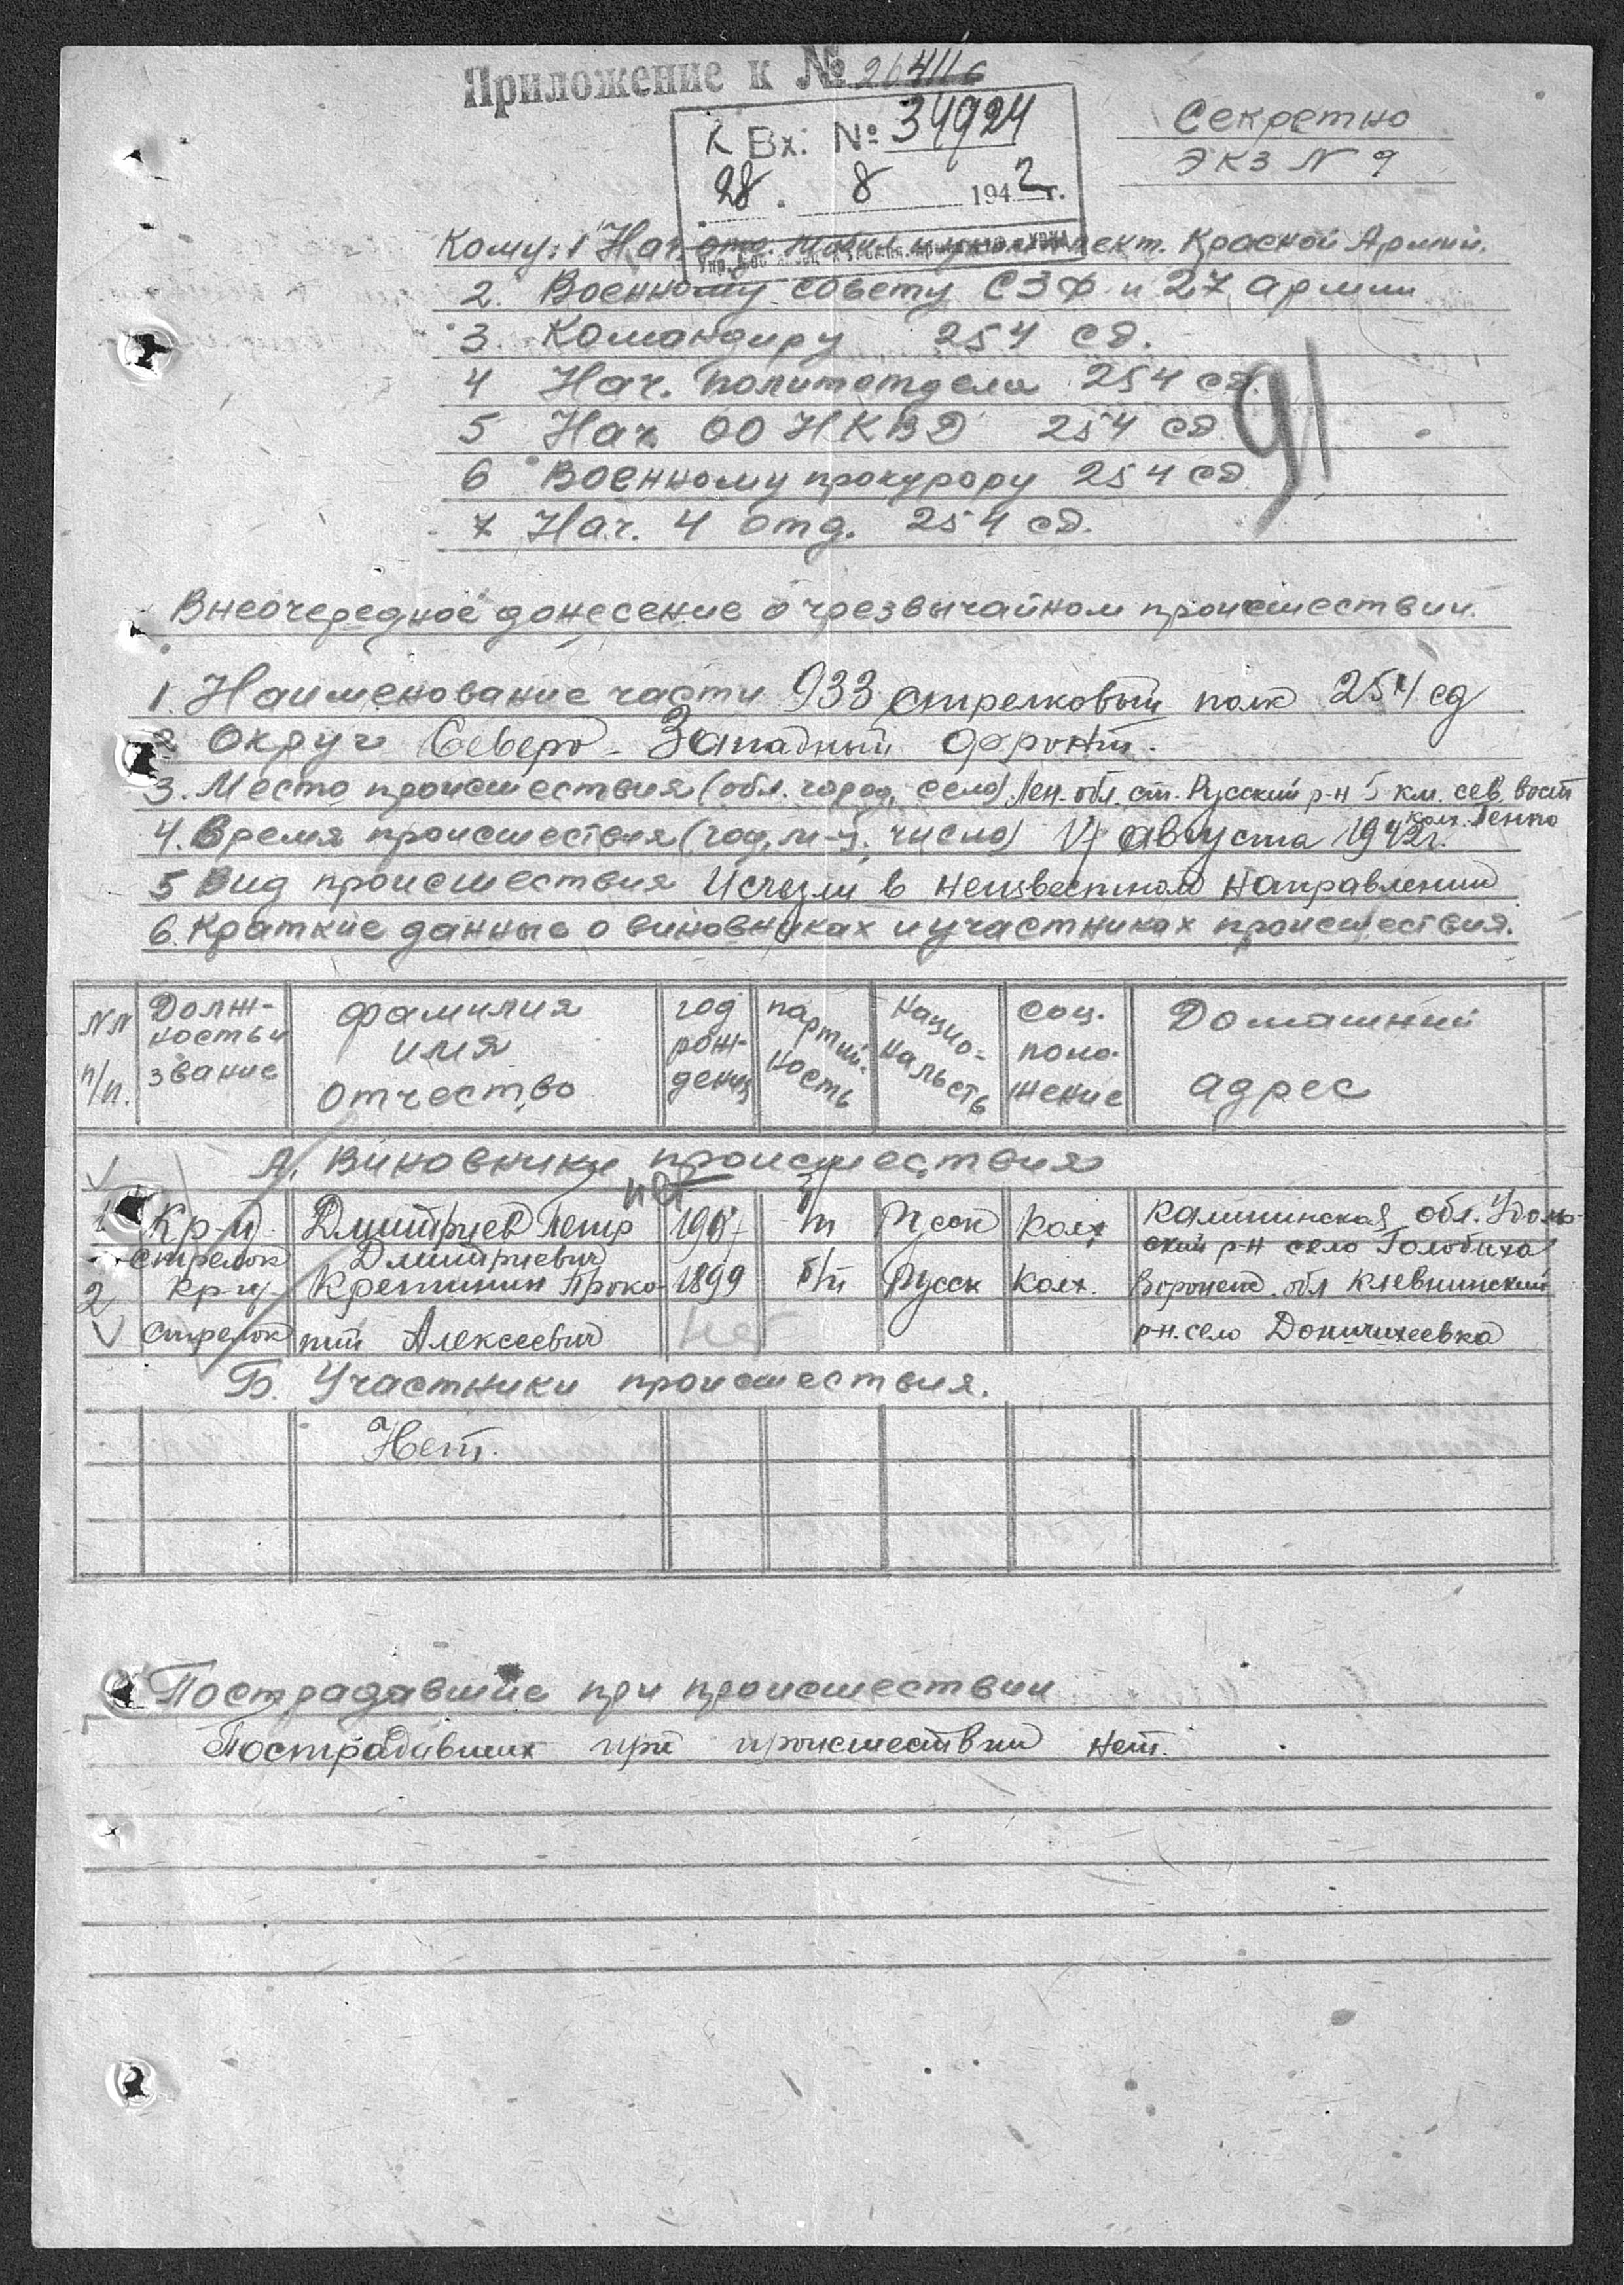 Приложение к № 26411с
К Вх. № 34924
28. 8 1942 г.
Секретно
Экз N 9
Кому: 1 Нач. отд. укомплект. Красной Армии.
2. Военному совету СЗФ и 27 армии
3. Командиру 254 сд.
4 Нач. политотдела 254 сд.
5 Нач. ОО НКВД 254 сд
6 Военному прокурору 254 сд
7 Нач. 4 отд. 254 сд.
91
Внеочередное донесение о чрезвычайном происшествии.
1. Наименование части 933 стрелковый полк 254 сд
2 Округ Северо-Западный фронт.
3. Место происшествия (обл. город, село) Лен. обл. ст. Русский р-н 5 км. сев. вост
4. Время происшествия (год, м-ц, число) августа 1942 г.
5 Вид происшествия Исчезли в неизвестном направлении
6. Краткие данные о виновниках и участниках происшествия.
NN п/п.
Должность и звание
фамилия имя отчество
год рождения
партийность
национальность
соц. положение
Домашний адрес
А. Виновники происшествия
нет
1 Кр-ц Дмитриев Петр б/п Русск Колх Калининская обл. Удомль-
стрелок Дмитриевич ский р-н село Голобиха
2 Кр-ц Кретинин Проко- 1899 б/п Русск Колх. Воронеж. обл
стрелок пий Алексеевич нет р-н. село
Б. Участники происшествия.
Нет.
Пострадавшие при происшествии
Пострадавших при происшествии нет.